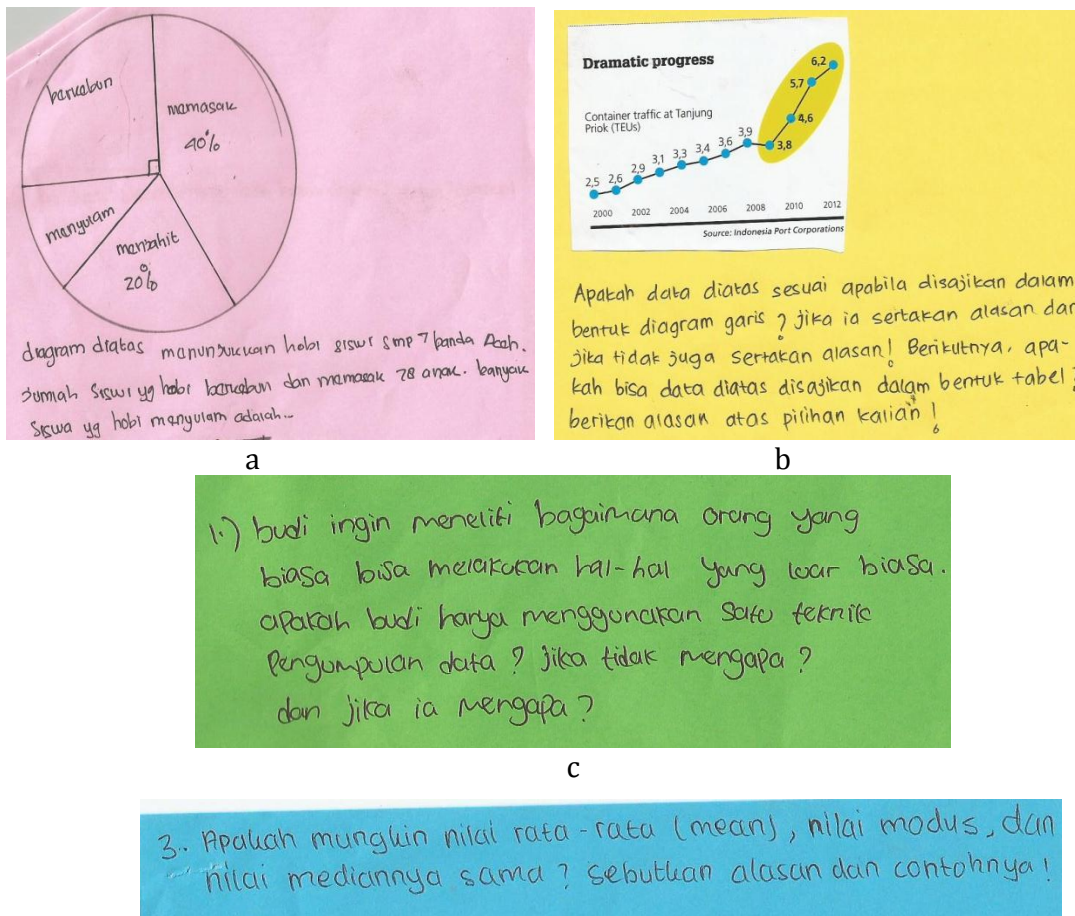 berkebun
memasak
40%
menyulam
menjahit
20%
diagram diatas menunjukkan hobi siswi smp 7 banda Aceh.
Jumlah siswi yg hobi berkebun dan memasak 78 anak. banyak
siswa yg hobi menyulam adalah...
a
Dramatic progress
Container traffic at Tanjung
Priok (TEUs)
2,5 2,6 2,9 3,1 3,3 3,4 3,6 3,9 3,8 4,6 5,7 6,2
2000 2002 2004 2006 2008 2010 2012
Source: Indonesia Port Corporations
Apakah data diatas sesuai apabila disajikan dalam
bentuk diagram garis ? jika ia sertakan alasan dan
jika tidak juga sertakan alasan! Berikutnya, apa-
kah bisa data diatas disajikan dalam bentuk tabel ?
berikan alasan atas pilihan kalian !
b
1.) budi ingin meneliti bagaimana orang yang
biasa bisa melakukan hal-hal yang luar biasa.
apakah budi hanya menggunakan satu teknik
Pengumpulan data ? jika tidak mengapa ?
dan jika ia mengapa ?
c
3. Apakah mungkin nilai rata-rata (mean), nilai modus, dan
nilai mediannya sama ? sebutkan alasan dan contohnya !